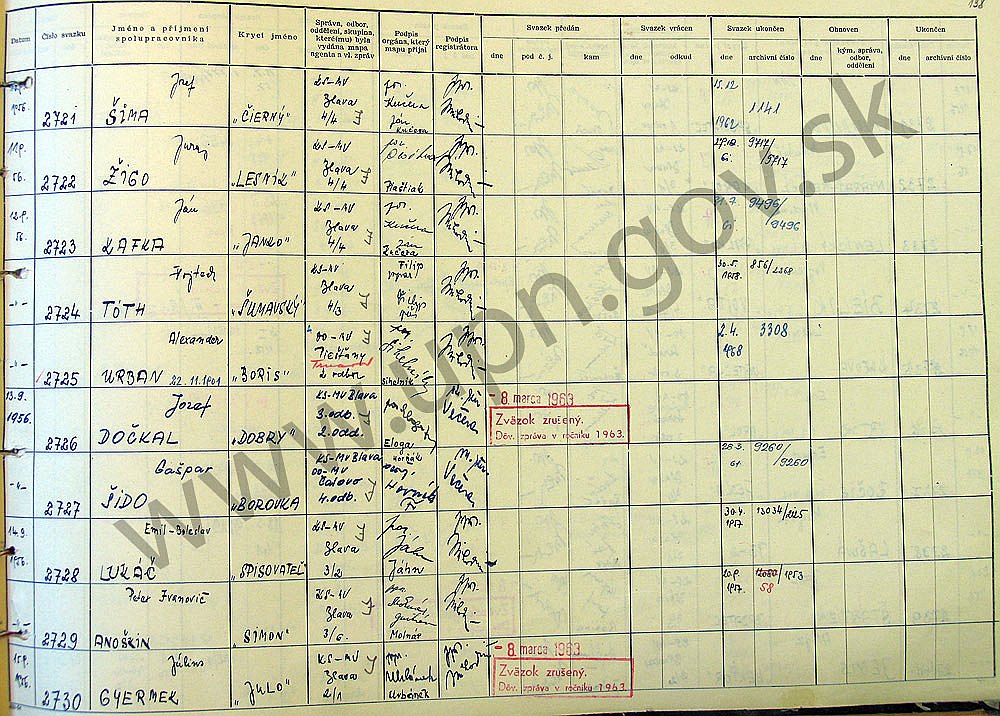 138
Datum
Číslo svazku
Jméno a příjmení
spolupracovníka
Krycí jméno
Správa, odbor,
oddělení, skupina,
které(mu) byla
vydána mapa
agenta a vl. zpráv
Podpis
orgána, který
mapu přijal
Podpis
registrátora
Svazek předán
dne
pod č. j.
kam
Svazek vrácen
dne
odkud
Svazek ukončen
dne
archivní číslo
Obnoven
dne
kým, správa,
odbor,
oddělení
Ukončen
dne
archivní číslo
1956.
2721
Jozef
ŠIMA
„ČIERNÝ"
KS-MV
Blava
4/4
por.
Kučera
Ján
Kučera
15.12
1962
1141
11.9.
56.
2722
Juraj
ŽIGO
„LESNÍK"
KS-MV
Blava
4/4
Plaštiak
9717/5717
12.9.
56.
2723
Ján
KAFKA
„JANKO"
KS-MV
Blava
4/4
por.
Kučera
Ján
Kučera
21.7.
9496/9496
-"-
2724
Vojtech
TÓTH
„ŠUMAVSKÝ"
KS-MV
Blava
4/3
Filip
30.5.
1958.
856/2368
-"-
2725
Alexander
URBAN 22.11.1901
„BORIS"
OO-MV
Piešťany
2 odbor
Sihelník
2.4.
1968
3308
13.9.
1956.
2726
Jozef
DOČKAL
„DOBRY"
KS-MV Blava
3. odb.
2. odd.
Večera
- 8. marca 1963
Zväzok zrušený.
Dôv. zpráva v ročníku 1963.
-"-
2727
Gašpar
ŠIDO
„BOROVKA
KS-MV Blava
OO-MV
Čalovo
4. odb.
Horňák
Večera
9260/9260
14.9.
1956.
2728
Emil-Boleslav
LUKÁČ
„SPISOVATEĽ"
KS-MV
Blava
3/2
Jáhn
Jáhn
30.4.
1957.
-"-
2729
Peter Ivanovič
ANOŠKIN
„SIMON"
KS-MV
Blava
3/6.
Molnár
20.9.
1957.
/1953
58
15.9.
1956.
2730
Július
GYERMEK
„JULO"
KS-MV
Blava
2/1
Urbánek
- 8. marca 1963
Zväzok zrušený.
Dôv. zpráva v ročníku 1963.
www.upn.gov.sk